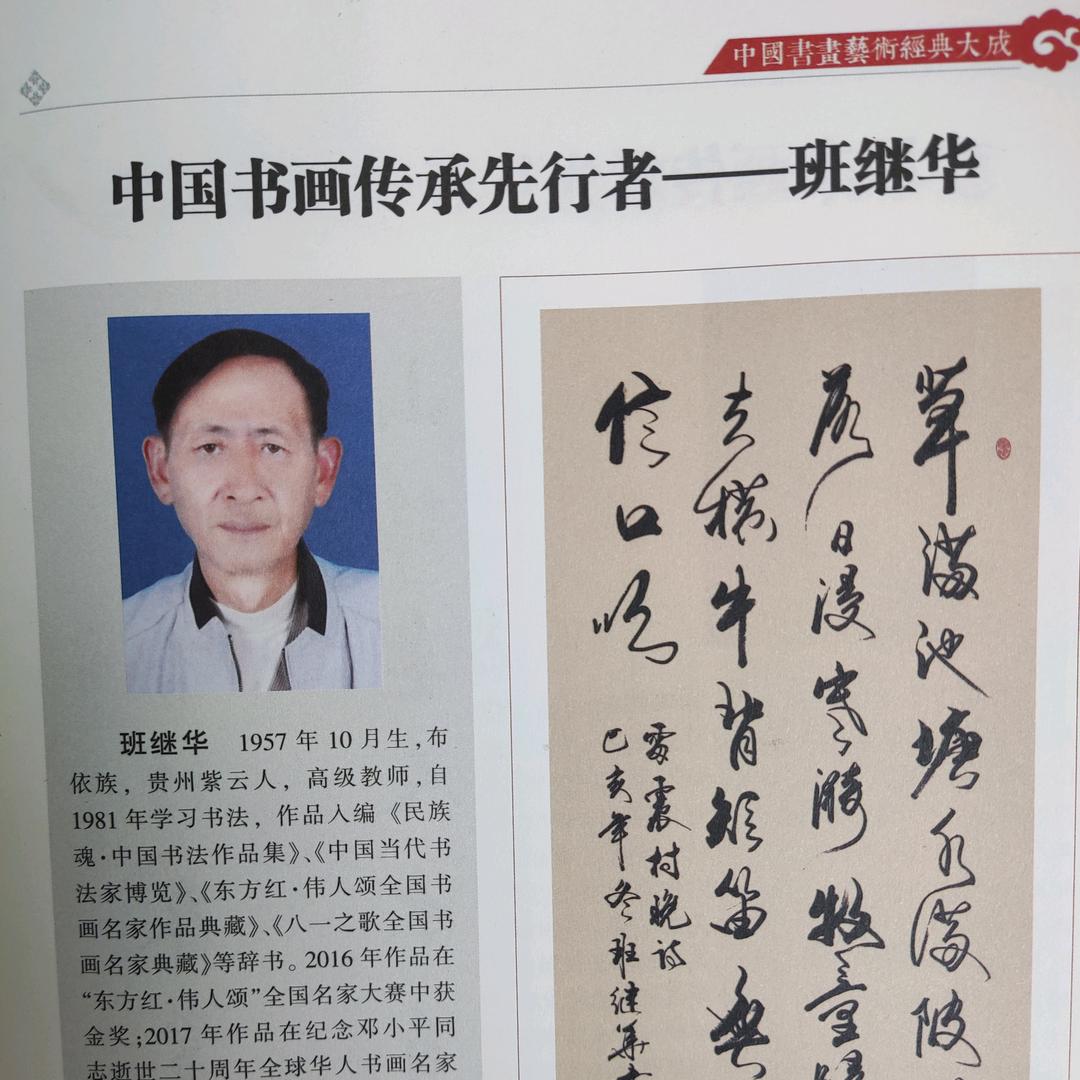 中國書畫藝術經典大成
中国书画传承先行者——班继华
班继华 1957 年 10 月生，布
依族，贵州紫云人，高级教师，自
1981 年学习书法，作品入编《民族
魂·中国书法作品集》、《中国当代书
法家博览》、《东方红·伟人颂全国书
画名家作品典藏》、《八一之歌全国书
画名家典藏》等辞书。2016 年作品在
“东方红·伟人颂”全国名家大赛中获
金奖；2017 年作品在纪念邓小平同
志逝世二十周年全球华人书画名家
草满池塘水满陂
落日漫寒漪牧童归
去横牛背短笛無
信口吹
雷震村晚诗
己亥年冬班继华